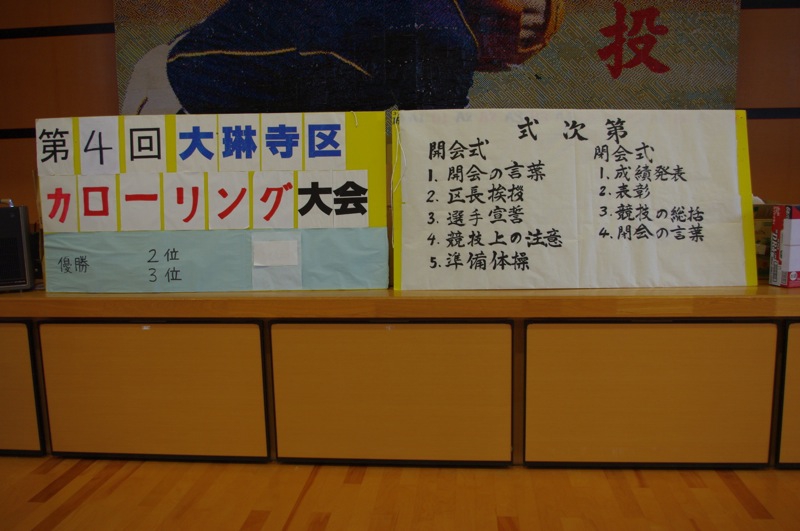 投
第4回大琳寺区
カローリング大会
優勝
2位
3位
式次第
開会式
1. 開会の言葉
2. 区長挨拶
3. 選手宣誓
4. 競技上の注意
5. 準備体操
閉会式
1. 成績発表
2. 表彰
3. 競技の総括
4. 閉会の言葉